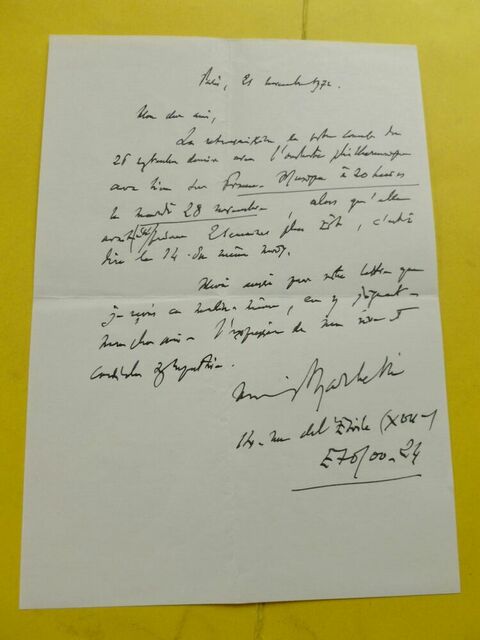 Paris, 21 novembre 1972.
Mon cher ami,
La retransmission de votre concert du
26 septembre dernier avec l'orchestre philharmonique
aura lieu sur France-Musique à 20 heures
le mardi 28 novembre, alors qu'elle
avait été prévue 2 semaines plus tôt, c'est à
dire le 14 du même mois.
Merci aussi pour votre lettre que
je reçois ce matin même, en y joignant
mon cher ami l'expression de mes
cordiales sympathies.
14, rue de l'Etoile (XVII
E70/00-24